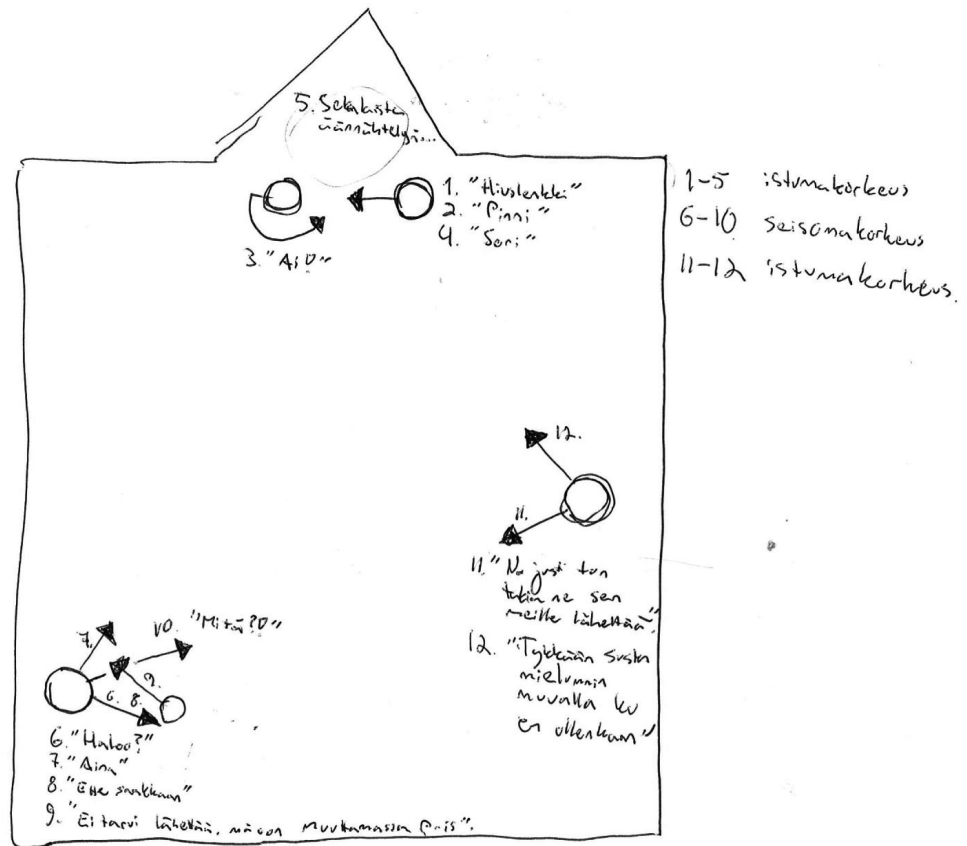 5. Sekalaista
äännähtelyä...
1. "Hiuslenkki"
2. "Pinni"
4. "Sori"
3. "Ai?"
1-5 istumakorkeus
6-10 seisomakorkeus
11-12 istumakorkeus.
12.
11.
11. "No justi ton
takia ne sen
meille lähettää".
12. "Tykkään susta
mielummin
muualla ku
en ollenkaan"
7.
10. "Mitä?!"
9.
6. 8.
6. "Haloo?"
7. "Aina"
8. "Ette saakkaan"
9. "Ei tarvi lähettää, mä oon muuttamassa pois".